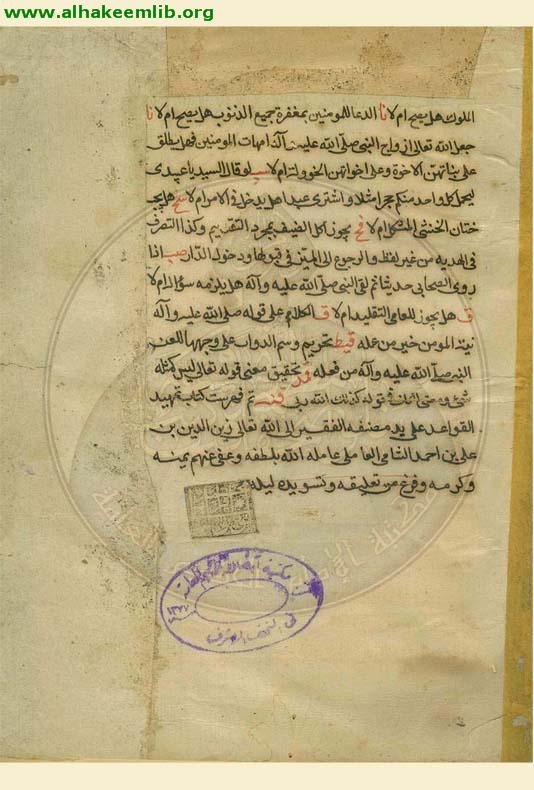 www.alhakeemlib.org
الملوك هل يصح ام لا نا الدعا للمومنين بمغفرة جميع الذنوب هل يصح ام لا نا
جعل الله تعالى ازواج النبي صلى الله عليه وآله امهات المومنين فهل يطلق
على بناتهن الاخوة وعلى اخواتهن الخؤولة ام لا لو قال السيد يا عبيدى
ليحمل كل واحد منكم حجرا مثلا واشترى عبدا هل يدخل في الامر ام لا هل يجب
ختان الخنثى المشكل ام لا يجوز اكل الضيف بمجرد التقديم وكذا التصرف
في الهدية من غير لفظ والرجوع الى المميز في قبولها ودخول الدار اذا
روى الصحابي حديثا ثم لقى النبي صلى الله عليه وآله هل يلزمه سؤاله ام لا
ق هل يجوز للعامي التقليد ام لا ق الكلام على قوله صلى الله عليه وآله
نية المومن خير من عمله تحريم وسم الدواب على وجهها للعن
النبي صلى الله عليه وآله من فعله تحقيق معنى قوله تعالى ليس كمثله
شيء في قوله كذلك الله ربي تم فهرست كتاب تمهيد
القواعد على يد مصنفه الفقير الى الله تعالى زين الدين بن
على بن احمد الشامي العاملي عامله الله بلطفه وعفى عنهم بمنه
وكرمه وفرغ من تعليقه وتسويده ليلة
مكتبة
في النجف الاشرف